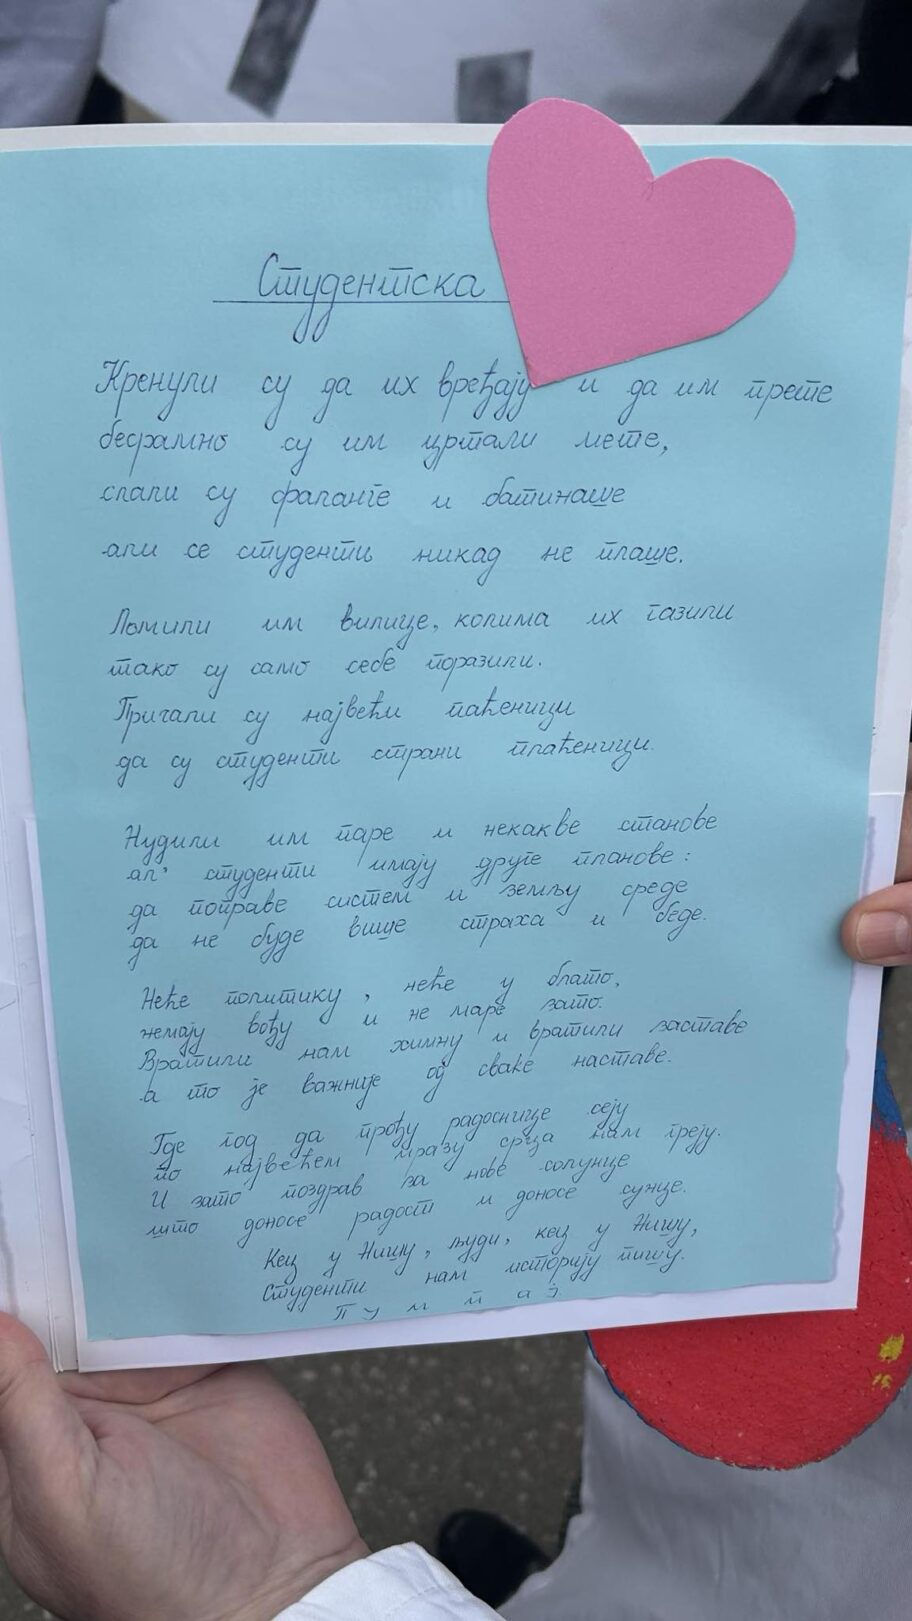 Студентска
Кренули су да их вређају и да им прете
бесрамно су им цртали мете,
слали су фаланге и батинаше
али се студенти никад не плаше.
Ломили им вилице, колима их газили
тако су само себе поразили.
Причали су највећи паћеници
да су студенти страни плаћеници.
Нудили им паре и некакве станове
ал' студенти имају друге планове:
да поправе систем и земљу среде
да не буде више страха и беде.
Неће политику, неће у блато,
немају вођу и не маре зато.
Вратили нам химну и вратили заставе
а то је важније од сваке наставе.
Где год да прођу радоснице сеју
по највећем мразу срца нам греју.
И зато поздрав за нове солунце
што доносе радост и доносе сунце.
Кец у Нишу, људи, кец у Нишу,
Студенти нам историју пишу.
Пумпај